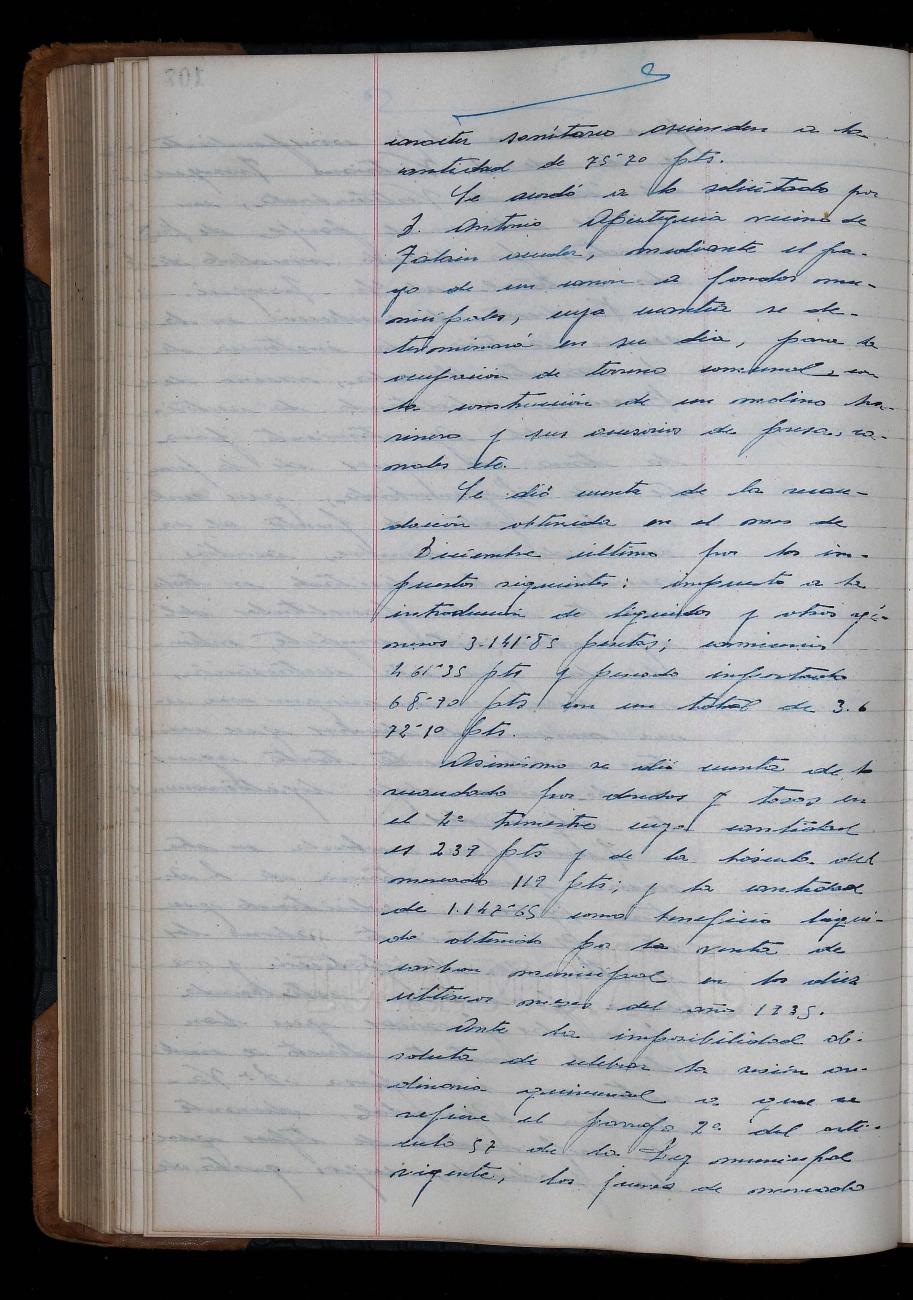 caracter sanitario ascienden a la
cantidad de 75'20 pts.
Se acordó a lo solicitado por
D. Antonio Apesteguia vecino de
acceder, mediante el pa-
go de un canon a fondos mu-
nicipales, cuya cuantía se de-
terminará en su dia, para la
ocupación de terreno comunal, con
la construcción de un molino ha-
rinero y sus accesorios de presa, ca-
nales etc.
Se dió cuenta de la recau-
dación obtenida en el mes de
Diciembre último por los im-
puestos siguientes: impuesto a la
introducción de liquidos y otros gé-
neros 3.141'85 pesetas; carnicerias
461'35 pts y pescado importado
68'90 pts con un total de 3.6
72'10 pts.
Asimismo se dió cuenta de lo
recaudado por derechos y tasas en
el 4º trimestre cuya cantidad
es 239 pts y de la báscula del
mercado 119 pts; y la cantidad
de 1.147'65 como beneficio liqui-
do obtenido por la venta de
carbon municipal en los diez
ultimos meses del año 1935.
Ante la imposibilidad ab-
soluta de celebrar la sesión or-
dinaria quincenal a que se
refiere el parrafo 2º del arti-
culo 57 de la Ley municipal
vigente, los jueves de mercado